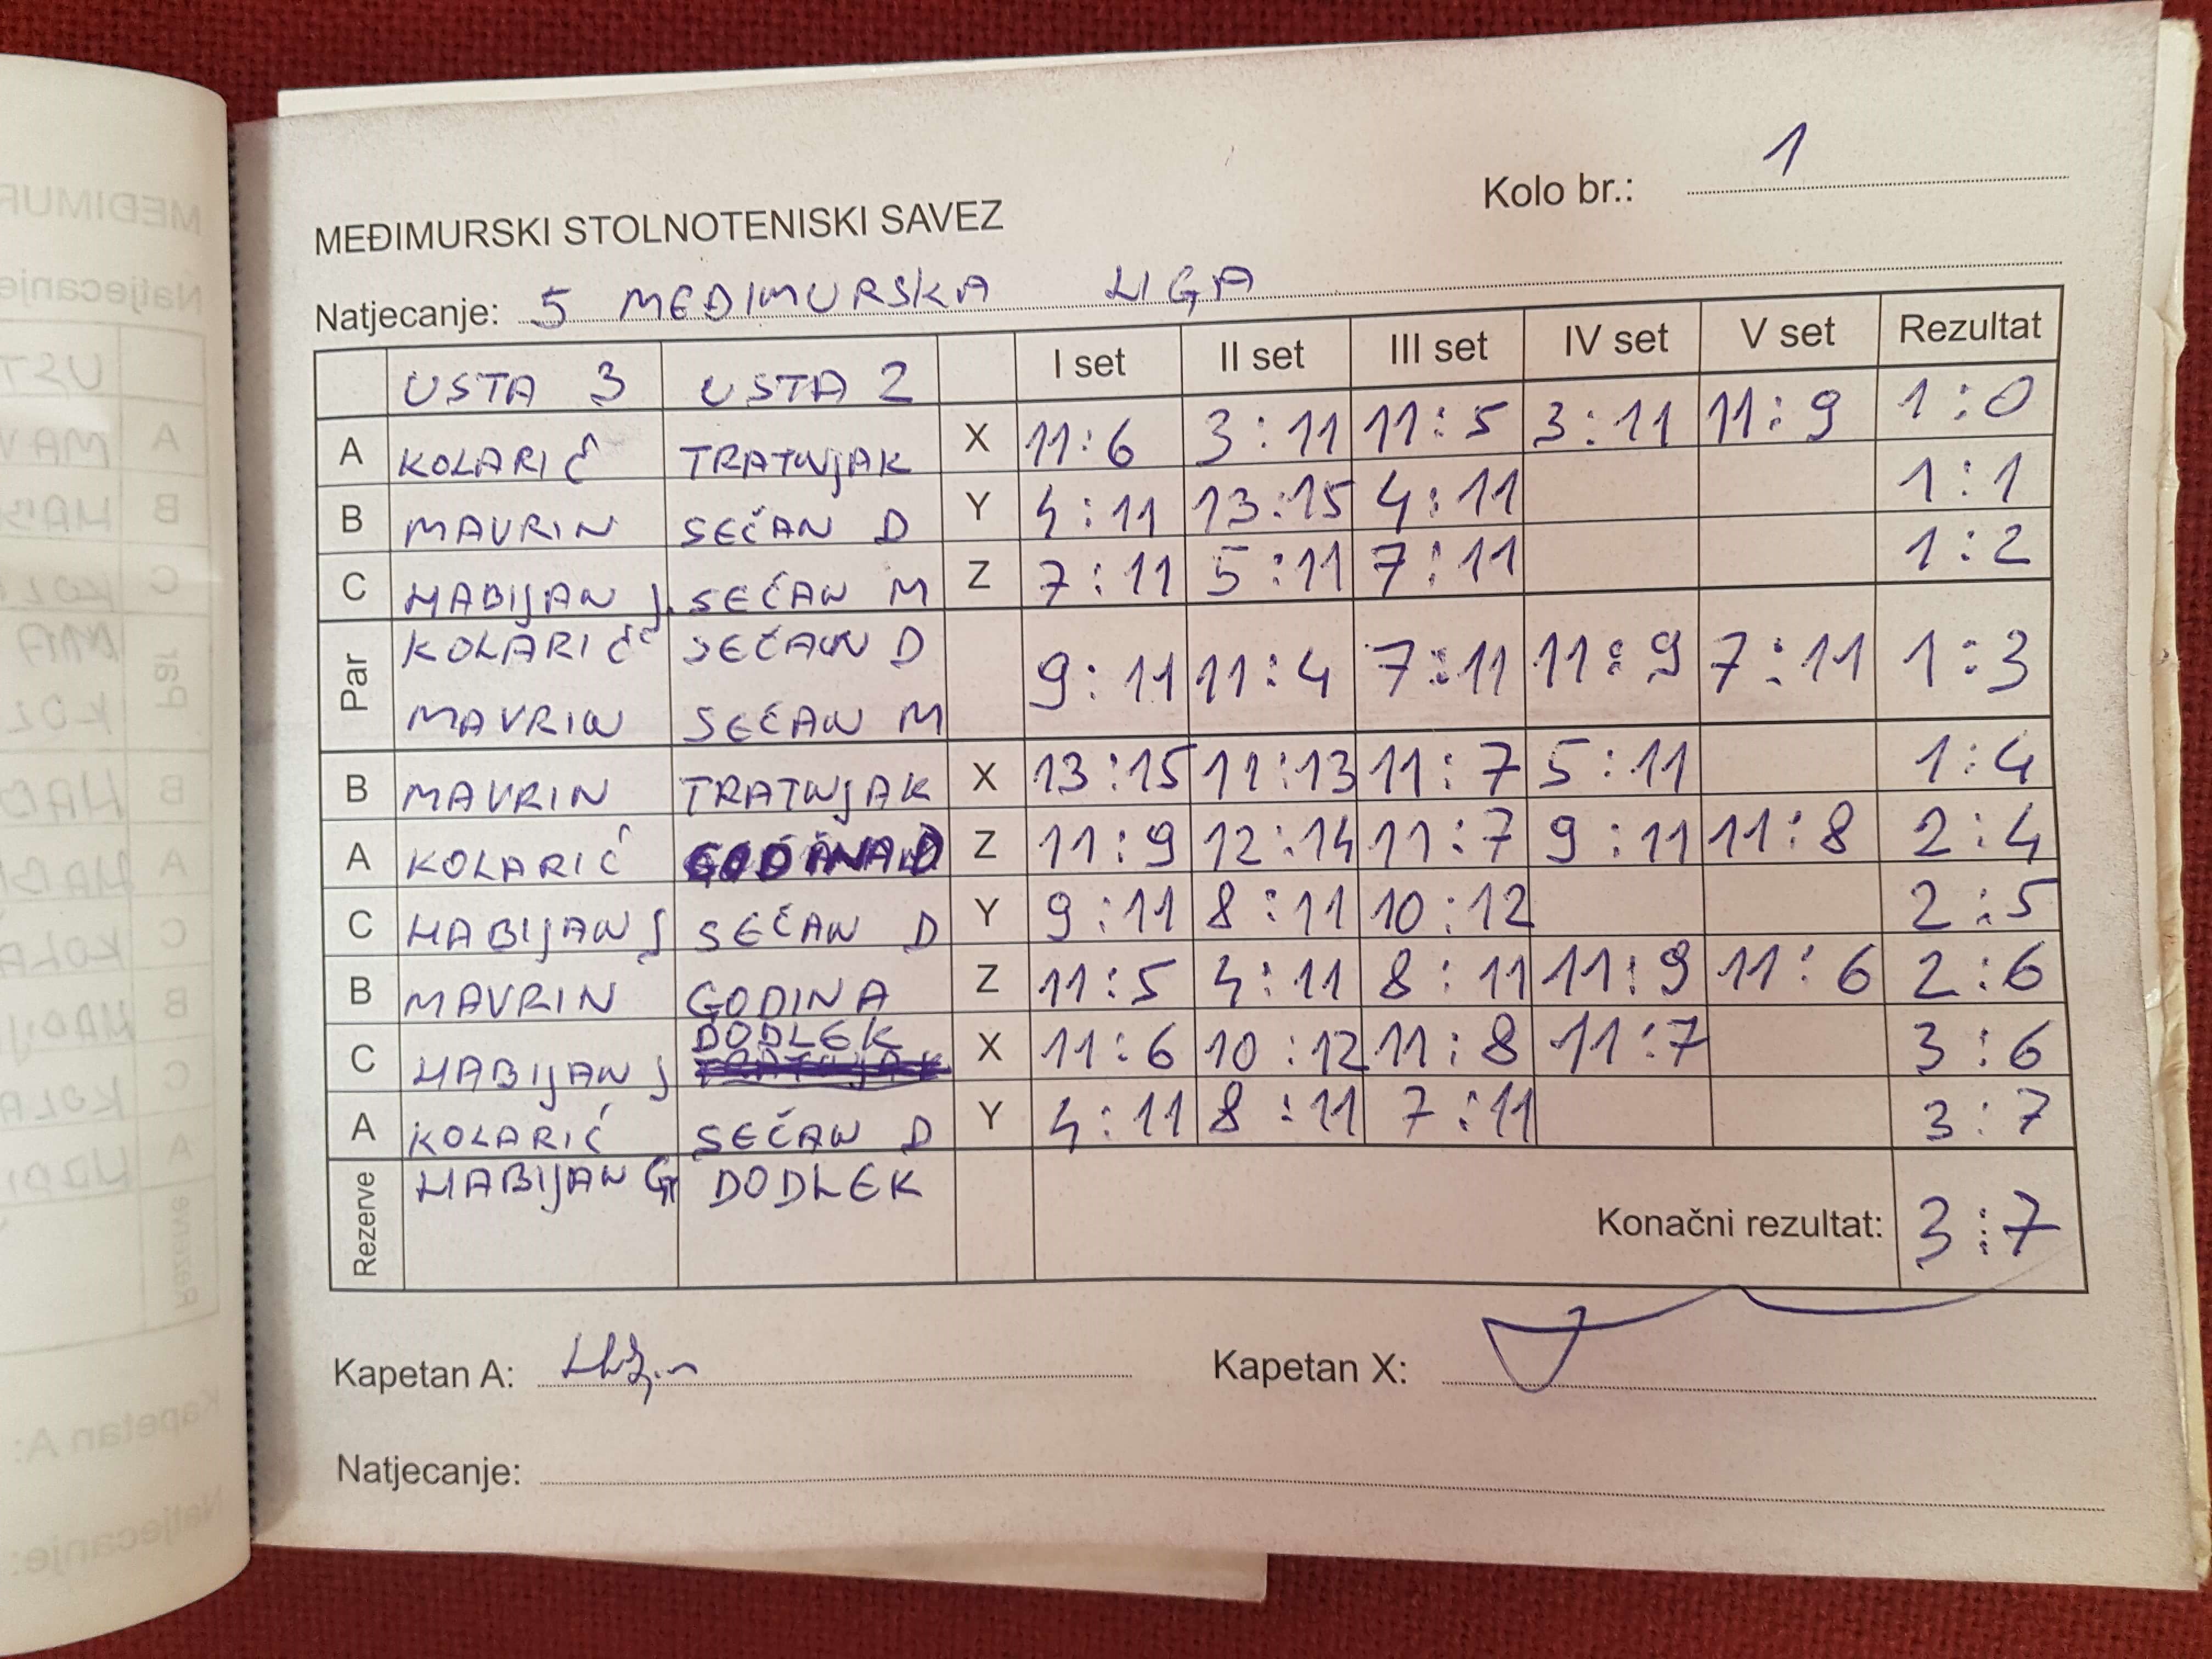 Kolo br.: 1
MEĐIMURSKI STOLNOTENISKI SAVEZ
Natjecanje: 5 MEĐIMURSKA LIGA
USTA 3 USTA 2 I set II set III set IV set V set Rezultat
A KOLARIĆ TRATNJAK X 11:6 3:11 11:5 3:11 11:9 1:0
B MAVRIN SEČAN D Y 4:11 13:15 4:11 1:1
C HABIJAN J. SEČAN M Z 7:11 5:11 7:11 1:2
Par KOLARIĆ SEČAN D
MAVRIN SEČAN M 9:11 11:4 7:11 11:9 7:11 1:3
B MAVRIN TRATNJAK X 13:15 11:13 11:7 5:11 1:4
A KOLARIĆ GODINA Z 11:9 12:14 11:7 9:11 11:8 2:4
C HABIJAN J SEČAN D Y 9:11 8:11 10:12 2:5
B MAVRIN GODINA Z 11:5 4:11 8:11 11:9 11:6 2:6
DODLEK
C HABIJAN J TRATNJAK X 11:6 10:12 11:8 11:7 3:6
A KOLARIĆ SEČAN D Y 4:11 8:11 7:11 3:7
Rezerve HABIJAN G DODLEK
Konačni rezultat: 3:7
Kapetan A: Kapetan X:
Natjecanje: